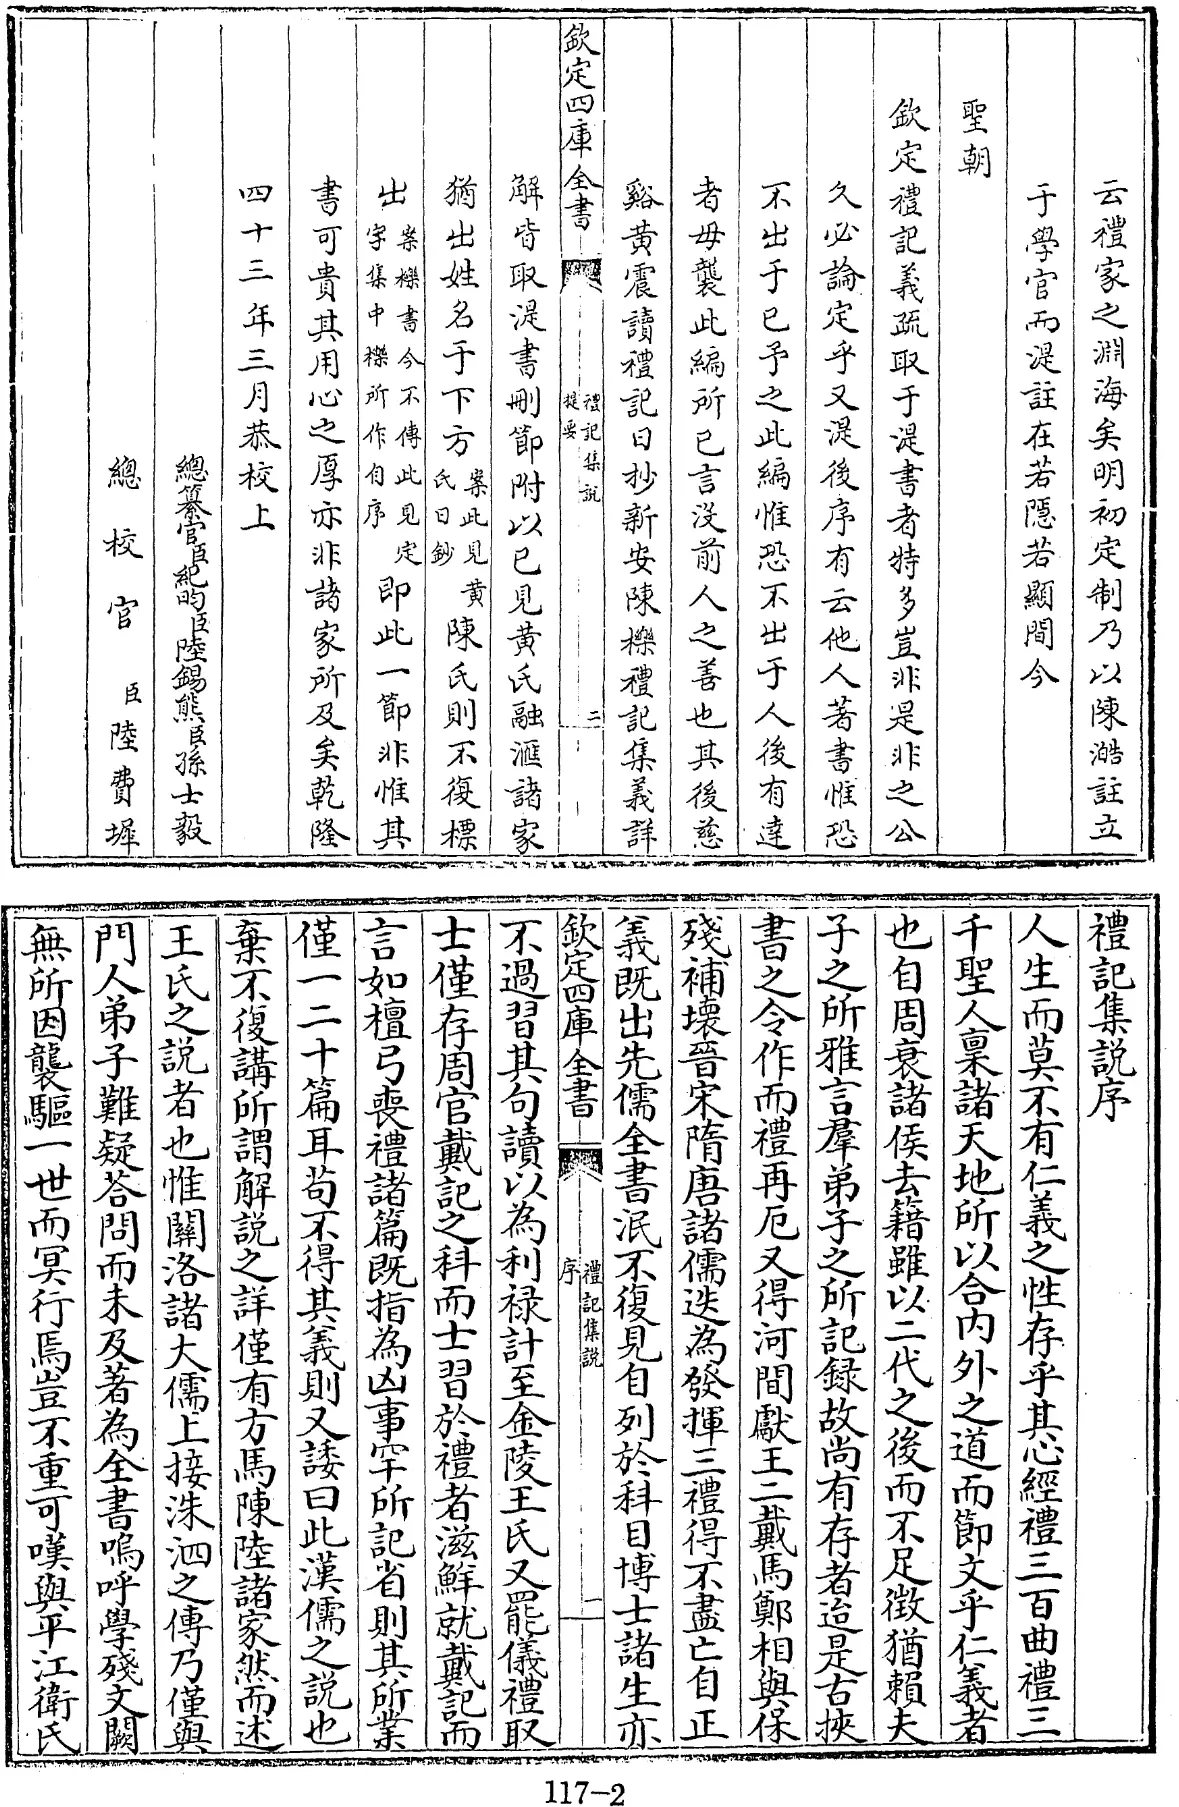 云禮家之淵海矣明初定制乃以陳澔註立
于學官而湜註在若隱若顯間今
聖朝
欽定禮記義疏取于湜書者特多豈非是非之公
久必論定乎又湜後序有云他人著書惟恐
不出于已予之此編惟恐不出于人後有達
者毋襲此編所已言没前人之善也其後慈
谿黄震讀禮記日抄新安陳櫟禮記集義詳
欽定四庫全書
禮記集說
提要
二
解皆取湜書刪節附以已見黄氏融滙諸家
猶出姓名于下方
案此見黄
氏日鈔
陳氏則不復標
出
案櫟書今不傳此見定
字集中櫟所作自序
即此一節非惟其
書可貴其用心之厚亦非諸家所及矣乾隆
四十三年三月恭校上
總纂官臣紀昀臣陸錫熊臣孫士毅
總校官臣陸費墀
禮記集説序
人生而莫不有仁義之性存乎其心經禮三百曲禮三
千聖人禀諸天地所以合内外之道而節文乎仁義者
也自周衰諸侯去籍雖以二代之後而不足徴猶賴夫
子之所雅言羣弟子之所記録故尚有存者迨是古挾
書之令作而禮再厄又得河間獻王二戴馬鄭相與保
殘補壞晉宋隋唐諸儒迭為發揮三禮得不盡亡自正
義既出先儒全書泯不復見自列於科目博士諸生亦
欽定四庫全書
禮記集説
序
一
不過習其句讀以為利禄計至金陵王氏又罷儀禮取
士僅存周官戴記之科而士習於禮者滋鮮就戴記而
言如檀弓喪禮諸篇既指為凶事罕所記省則其所業
僅一二十篇耳苟不得其義則又諉曰此漢儒之説也
棄不復講所謂解説之詳僅有方馬陳陸諸家然而述
王氏之説者也惟關洛諸大儒上接洙泗之傳乃僅與
門人弟子難疑荅問而未及著為全書嗚呼學殘文闕
無所因襲驅一世而冥行焉豈不重可嘆與平江衛氏
117-2